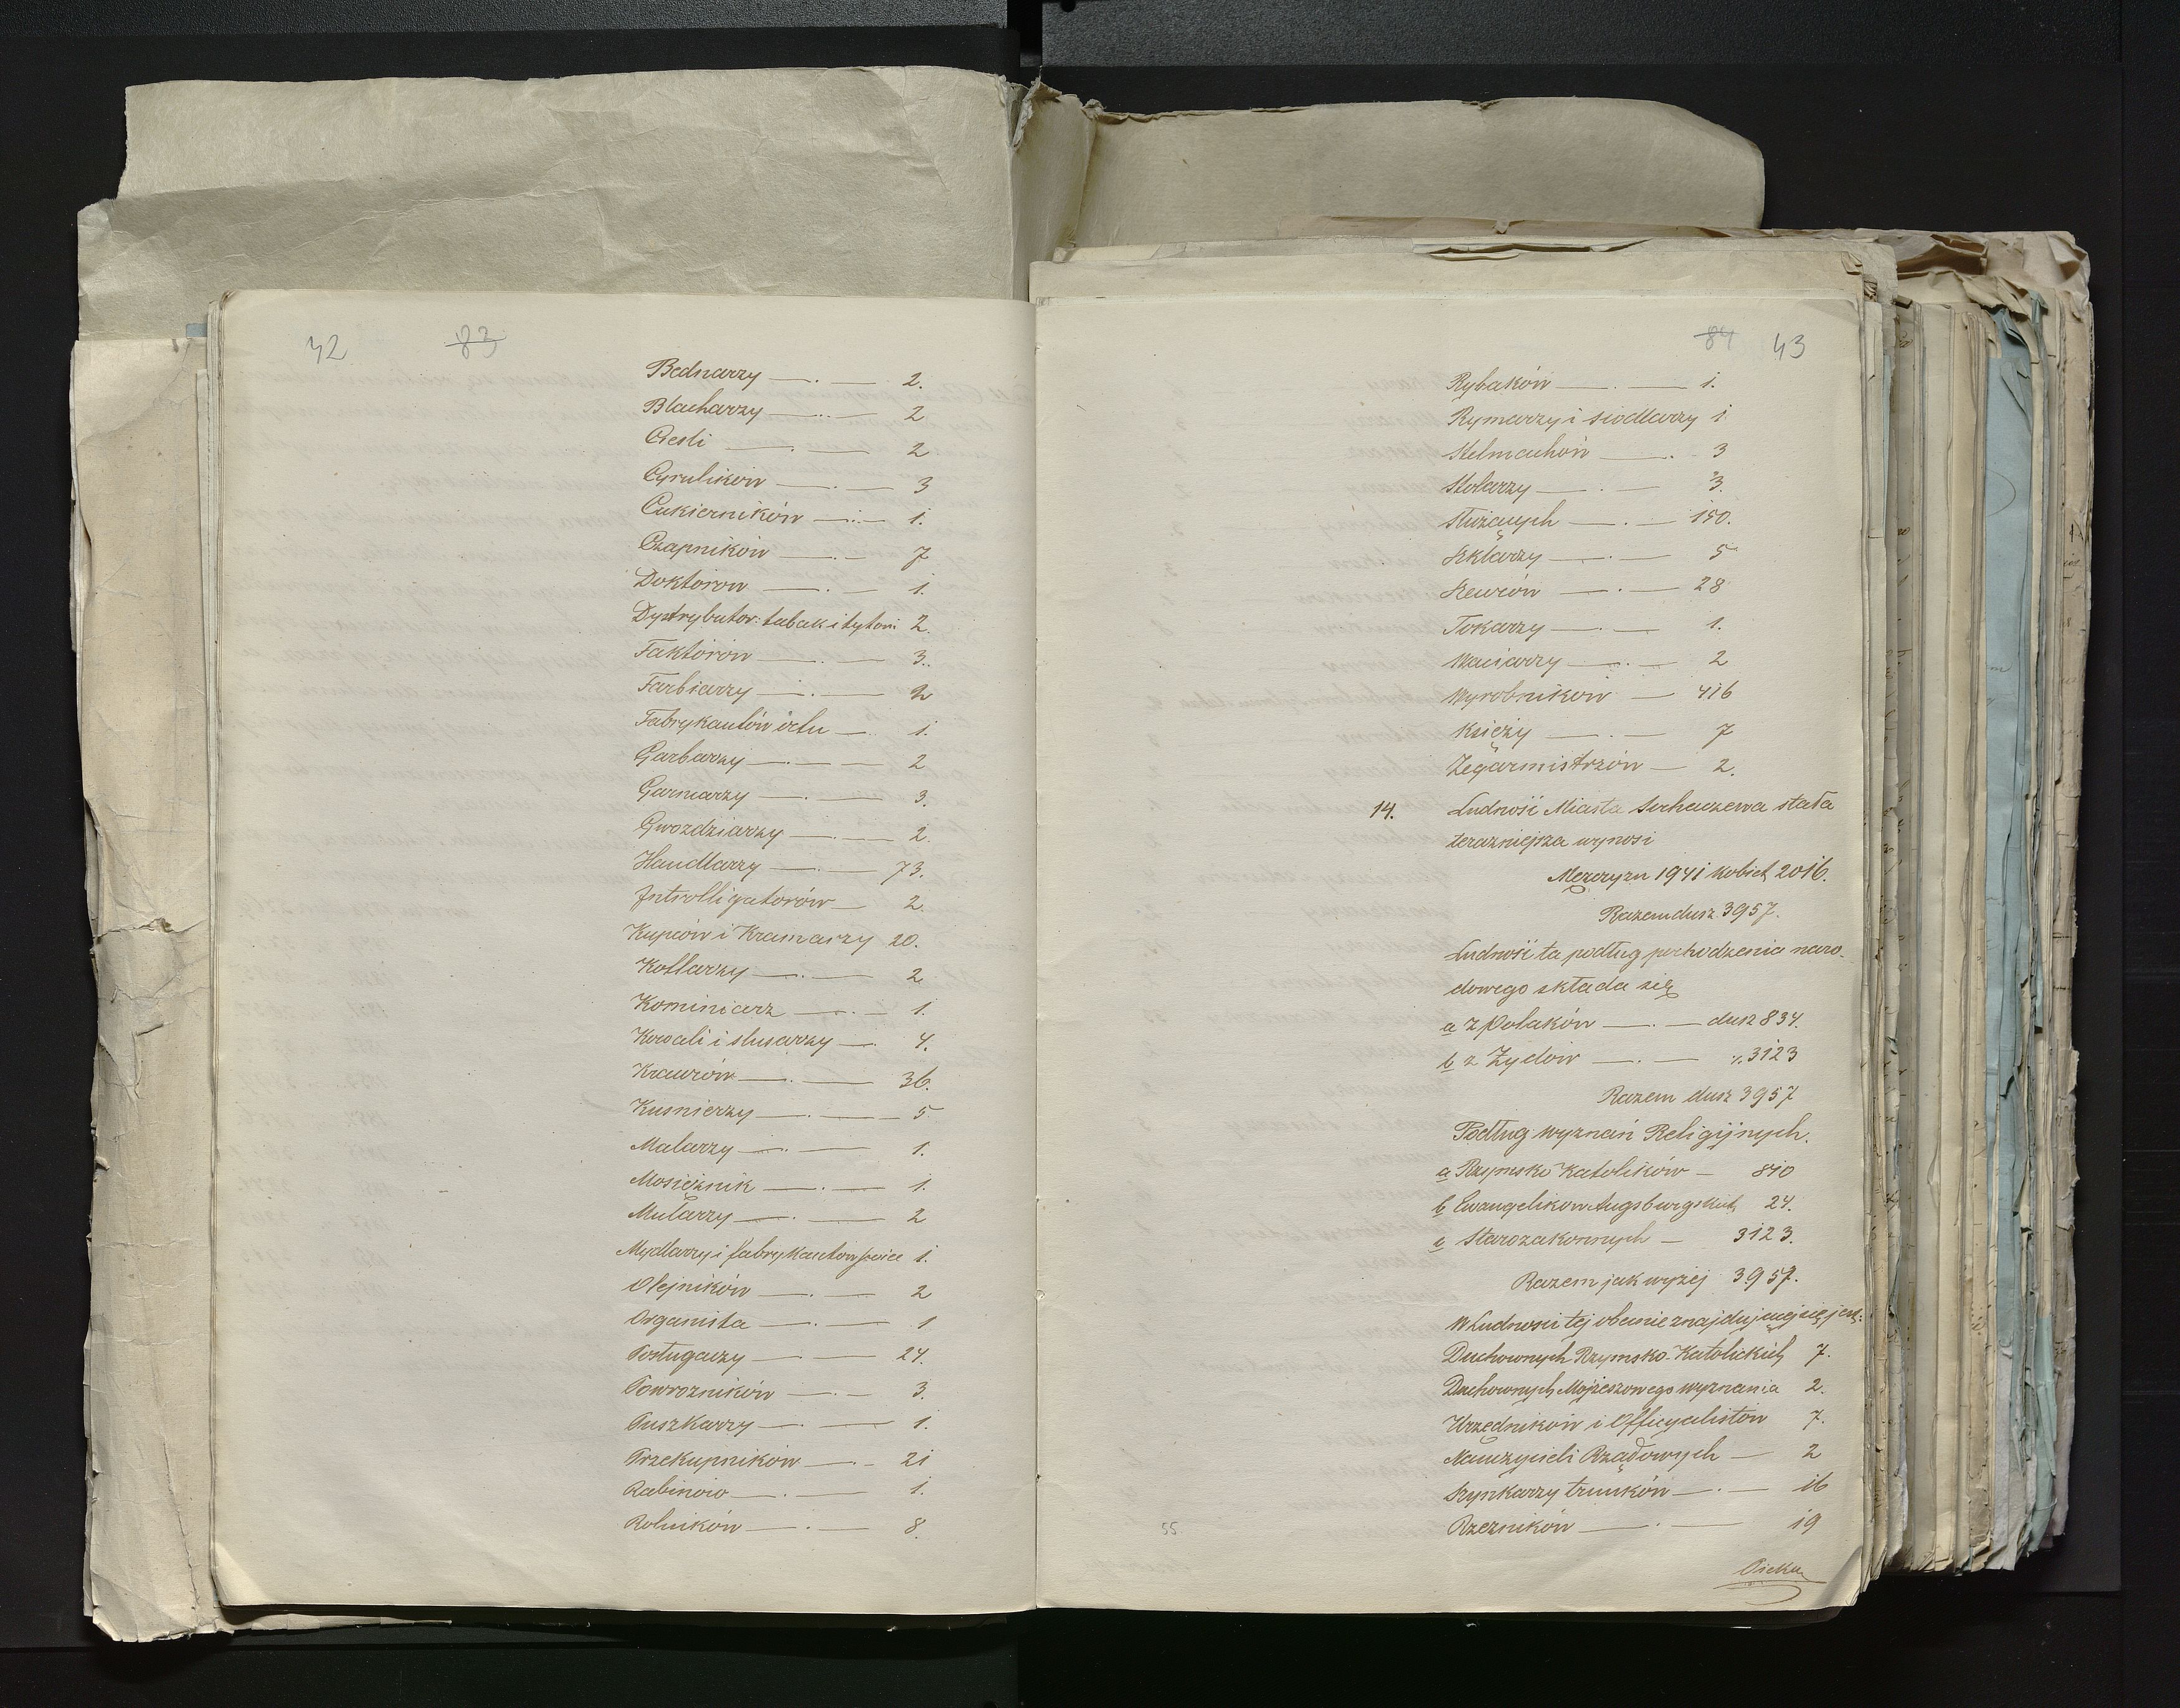 42 83
Bednarzy — . — 2.
Blacharzy — . — 2
Cieśli — . — 2
Cyrulików — . — 3
Cukierników — . — 1.
Czapników — . — 7
Doktorow — . — 1.
Dystrybutor: tabak i tytoni 2.
Faktorow — . — 3.
Farbiarzy — . — 2
Fabrykantów octu — . 1.
Garbarzy — . — 2
Garncarzy — . — 3.
Gwozdziarzy — . — 2.
Handlarzy — . — 73.
Introlligatorów — 2.
Kupców i Kramarzy 20.
Kotlarzy — . — 2
Kominiarz — . — 1.
Kowali i slusarzy — . 4.
Krawców — . — 36.
Kusnierzy — . — 5
Malarzy — . — 1.
Mosiężnik — . — 1.
Mularzy — . — 2
Mydlarzy i fabrykantow swiec 1.
Olejników — . — 2
Organista — . — 1
Posługaczy — . — 24.
Powrozników — . — 3.
Puszkarzy — . — 1.
Przekupników — . — 21
Rabinow — . — 1.
Rolników — . — 8.
84 43
Rybaków — . — 1.
Rymarzy i siodlarzy 1
Stelmachów — . 3
Stolarzy — . — 3.
Służących — . — 150.
Szklarzy — . — 5
Szewców — . — 28
Tokarzy — . — 1.
Waciarzy — . — 2
Wyrobników — 416
Księży — . — 7
Zegarmistrzów — 2.
14. Ludność Miasta Sochaczewa stała
terazniejsza wynosi
Męzczyzn 1941 kobiet 2016.
Razem dusz 3957.
Ludność ta podług pochodzenia naro-
dowego składa się
a z Polaków — . — dusz 834.
b z Żydów — . — ,, 3123
Razem dusz 3957
Podług wyznań Religijnych.
a Rzymsko Katolików — 810
b Ewangelikow Augsburgskich 24.
c Starozakonnych — 3123.
Razem jak wyżej 3957.
W Ludności tej obecnie znajdującej się jest:
Duchownych Rzymsko-Katolickich 7.
Duchownych Mojżeszowego wyznania 2.
Urzędników i Officyalistow 7.
Nauczycieli Rządowych — 2
Szynkarzy trunków — . — 16
Rzezników — . — 19
55
Pieka